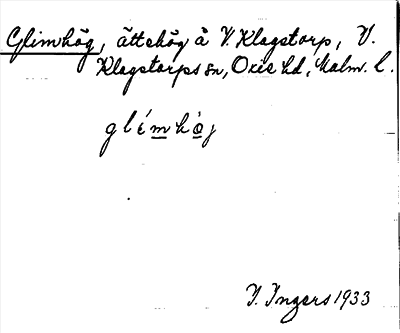 Glimhög, ättehög å V. Klagstorp, V.
Klagstorps sn, Oxie hd, Malm. l.
glémhǫ̀j
I. Ingers 1933